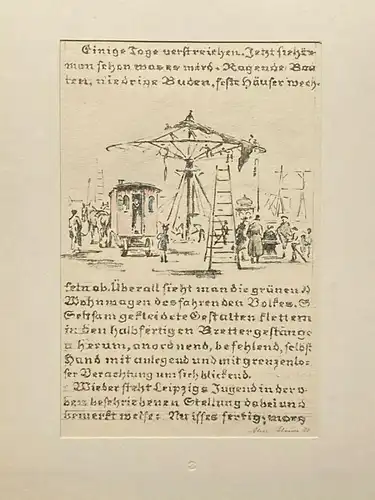 Einige Tage verstreichen. Jetzt sieht
man schon was es wird. Ragende Bau
ten, niedrige Buden, feste Häuser wech-
seln ab. Überall sieht man die grünen
Wohnwagen des fahrenden Volkes.
Seltsam gekleidete Gestalten klettern
in den halbfertigen Brettergestänge
herum, anordnend, befehlend, selbst
Hand mit anlegend und mit grenzenlo-
ser Verachtung um sich blickend.
Wieder steht Leipzigs Jugend in der o-
ben beschriebenen Stellung dabei und
bemerkt weise: Nu isses fertig, morg